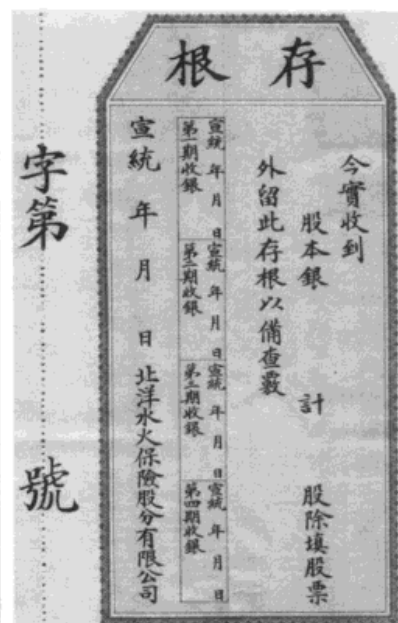 存根
今實收到
股本銀 計 股除填股票
外留此存根以備查覈
宣統 年 月 日
第一期收銀
宣統 年 月 日
第二期收銀
宣統 年 月 日
第三期收銀
宣統 年 月 日
第四期收銀
宣統 年 月 日 北洋水火保險股分有限公司
字第 號